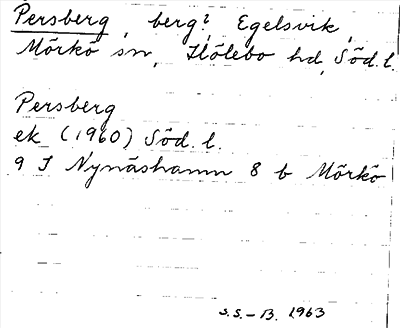 Persberg, berg? Egelsvik,
Mörkö sn, Hölebo hd, Söd. l.
Persberg
ek (1960) Söd. l.
9 I Nynäshamn 8 b Mörkö
S.S.-B. 1963